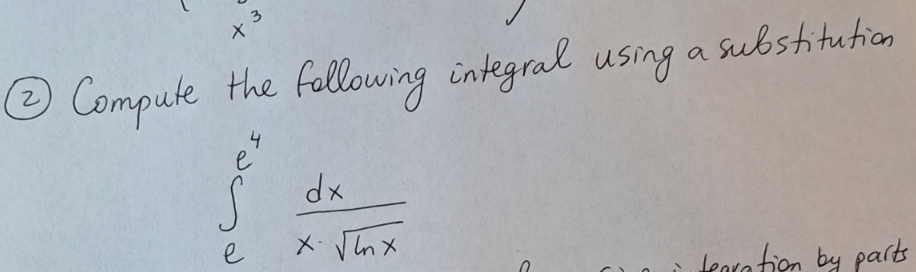 x³
② Compute the following integral using a substitution
∫ₑ^(e⁴) dx / (x · √(ln x))
by parts